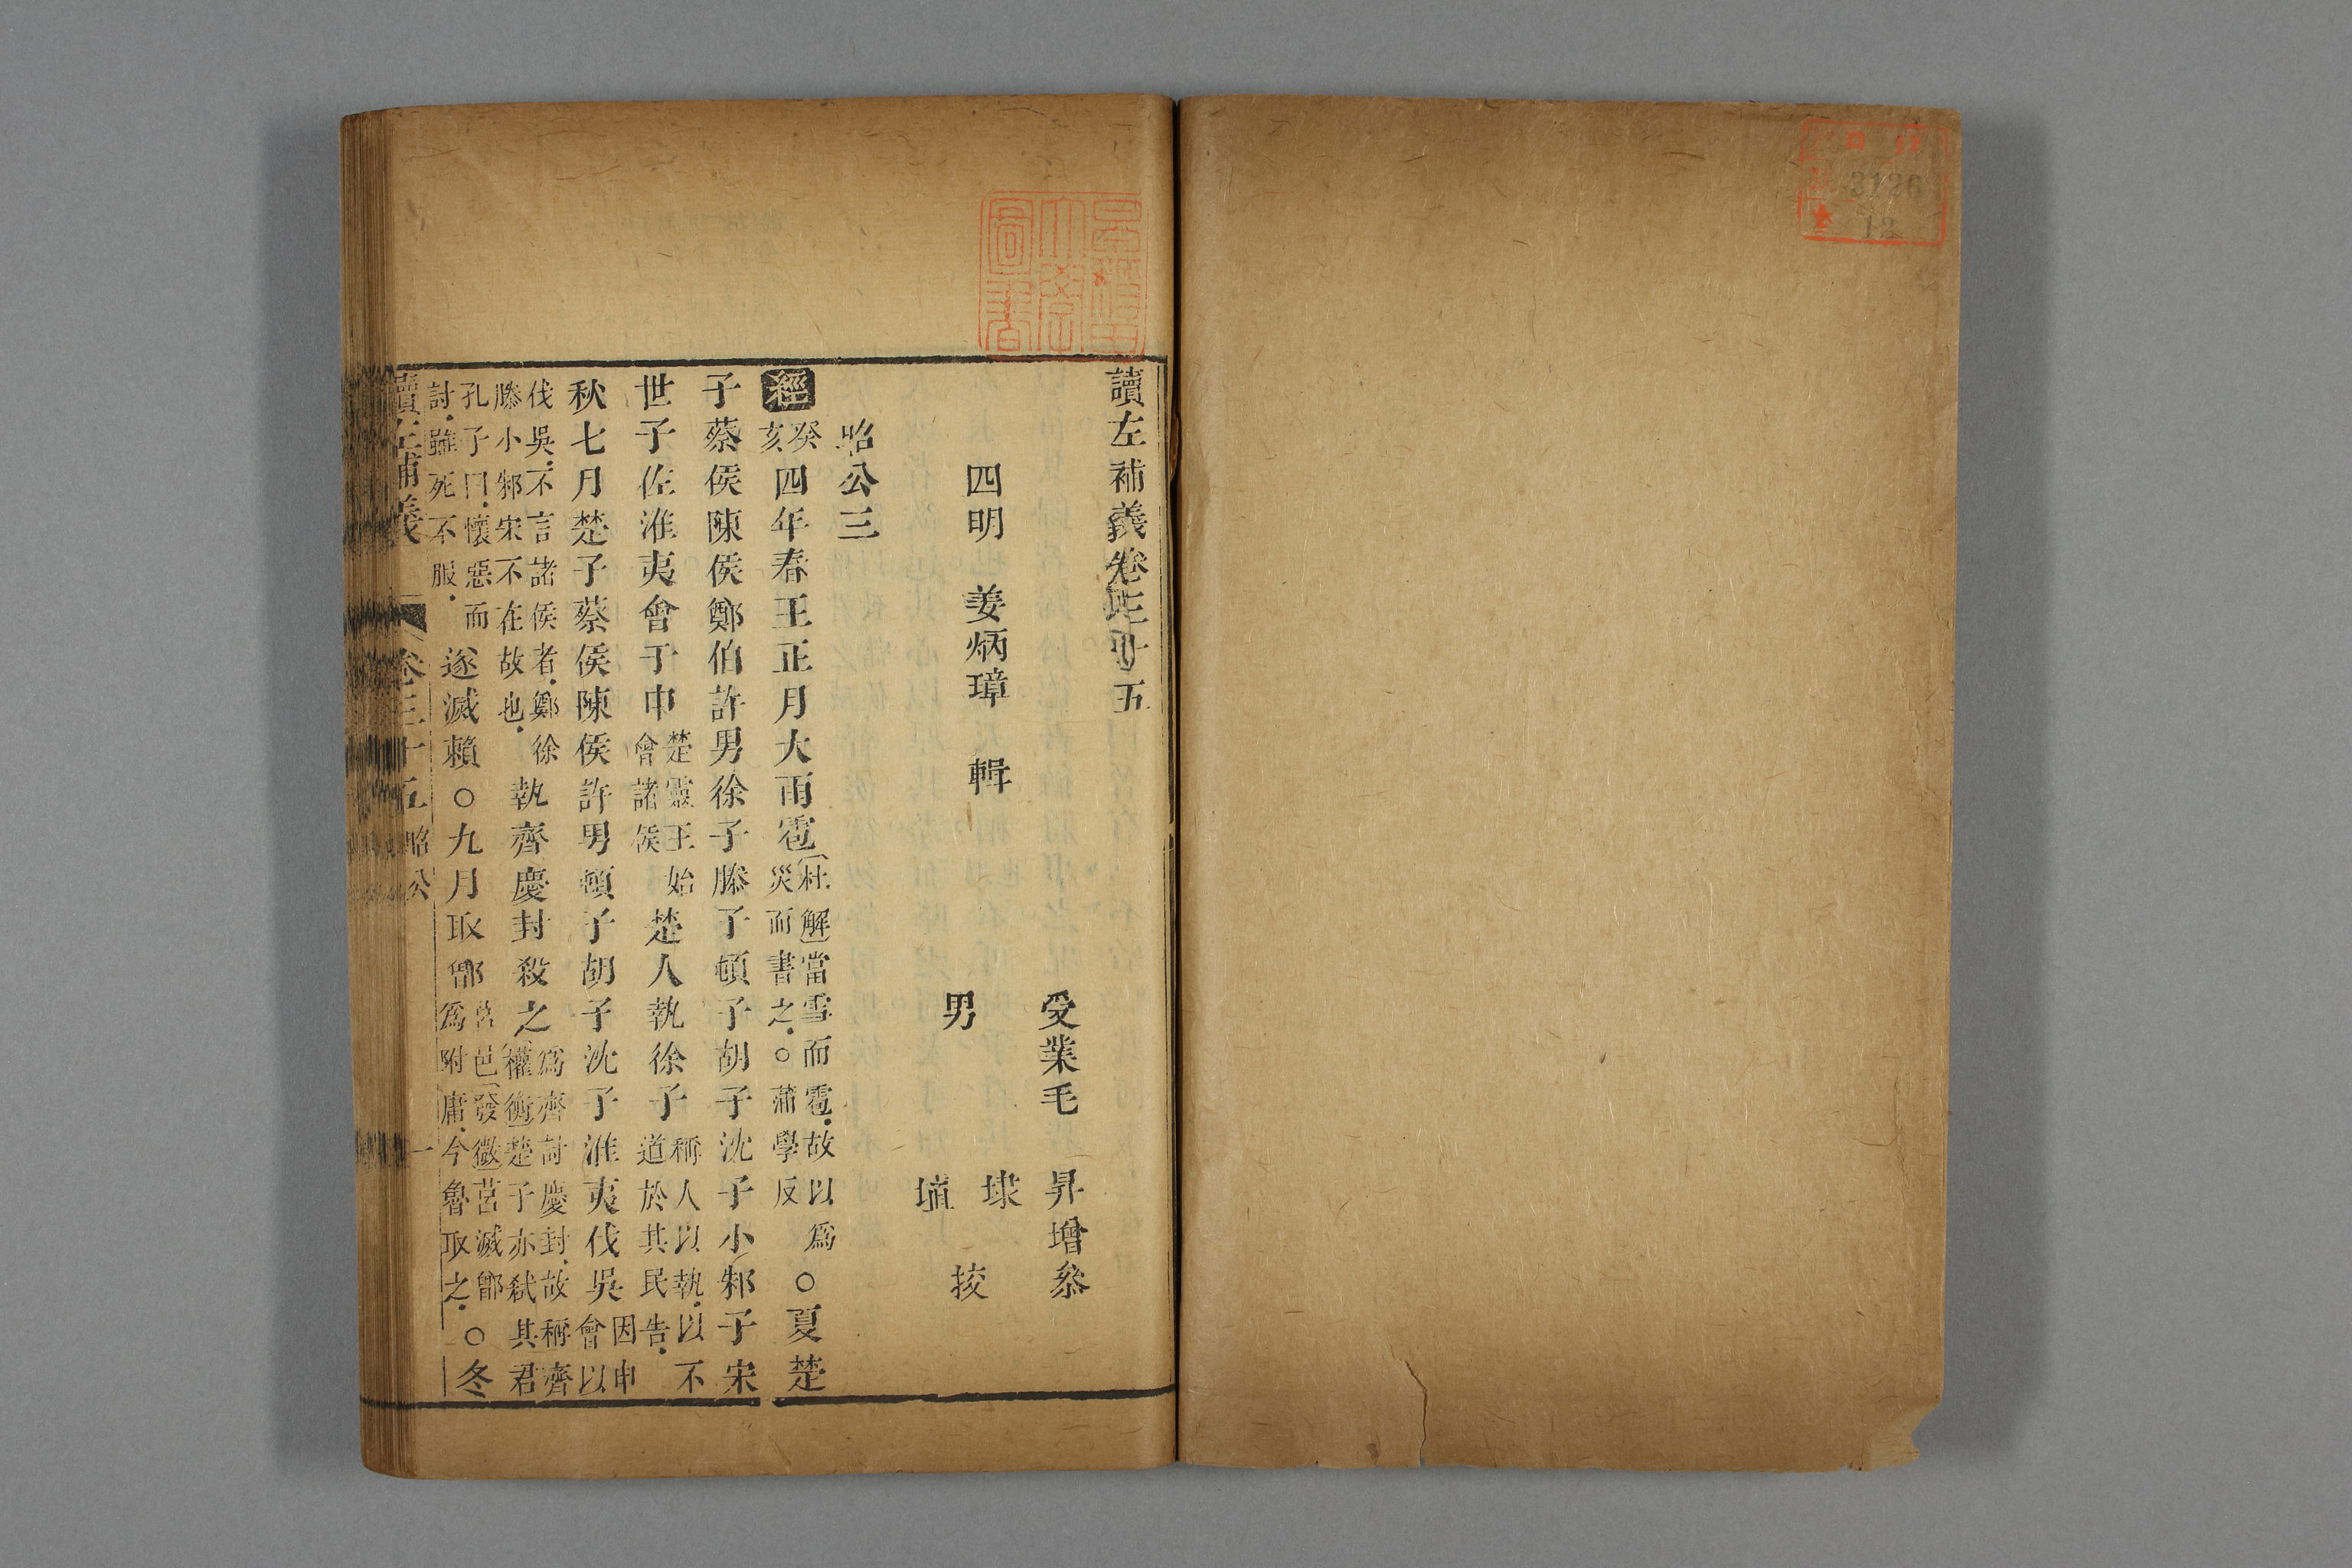 3126
12
讀左補義卷三十五
受業毛昇增叅
四明 姜炳璋 輯
男 埭 埴 挍
昭公三
經癸亥四年春王正月大雨雹杜解當雪而雹故以爲災而書之○蒲學反○夏楚
子蔡侯陳侯鄭伯許男徐子滕子頓子胡子沈子小邾子宋
世子佐淮夷會于申楚靈王始會諸侯楚人執徐子稱人以執以不道於其民告
秋七月楚子蔡侯陳侯許男頓子胡子沈子淮夷伐吳因申會以
伐吳不言諸侯者鄭徐滕小邾宋不在故也執齊慶封殺之爲齊討慶封故稱齊權衡楚子亦弑其君
孔子曰懷惡而討雖死不服遂滅賴○九月取鄫莒邑發微莒滅鄫爲附庸今魯取之○冬
讀左補義 卷三十五 昭公 一